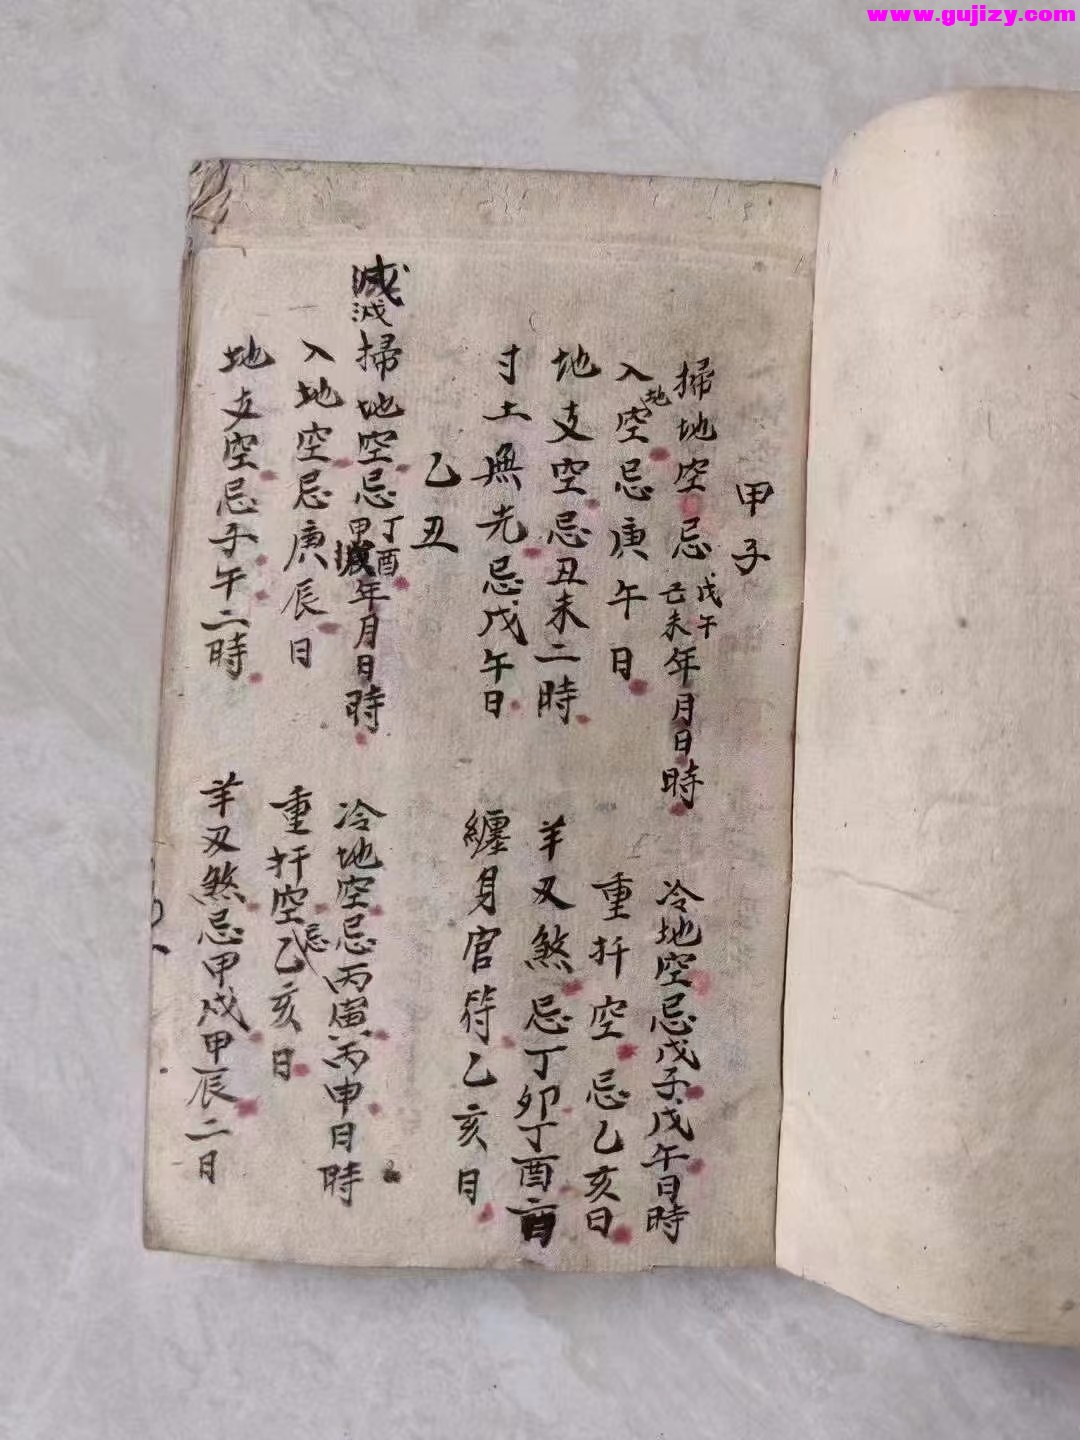 www.gujizy.com
甲子
掃地空忌戊午己未年月日時
冷地空忌戊子戊午日時
入地空忌庚午日
重扦空忌乙亥日
地支空忌丑未二時
羊刃煞忌丁卯丁酉二日
寸土無光忌戊午日
纏身官符乙亥日
乙丑
滅
滅掃地空忌丁酉年月日時
冷地空忌丙寅丙申日時
入地空忌庚辰日
重扦空忌乙亥日
地支空忌子午二時
羊刃煞忌甲戌甲辰二日